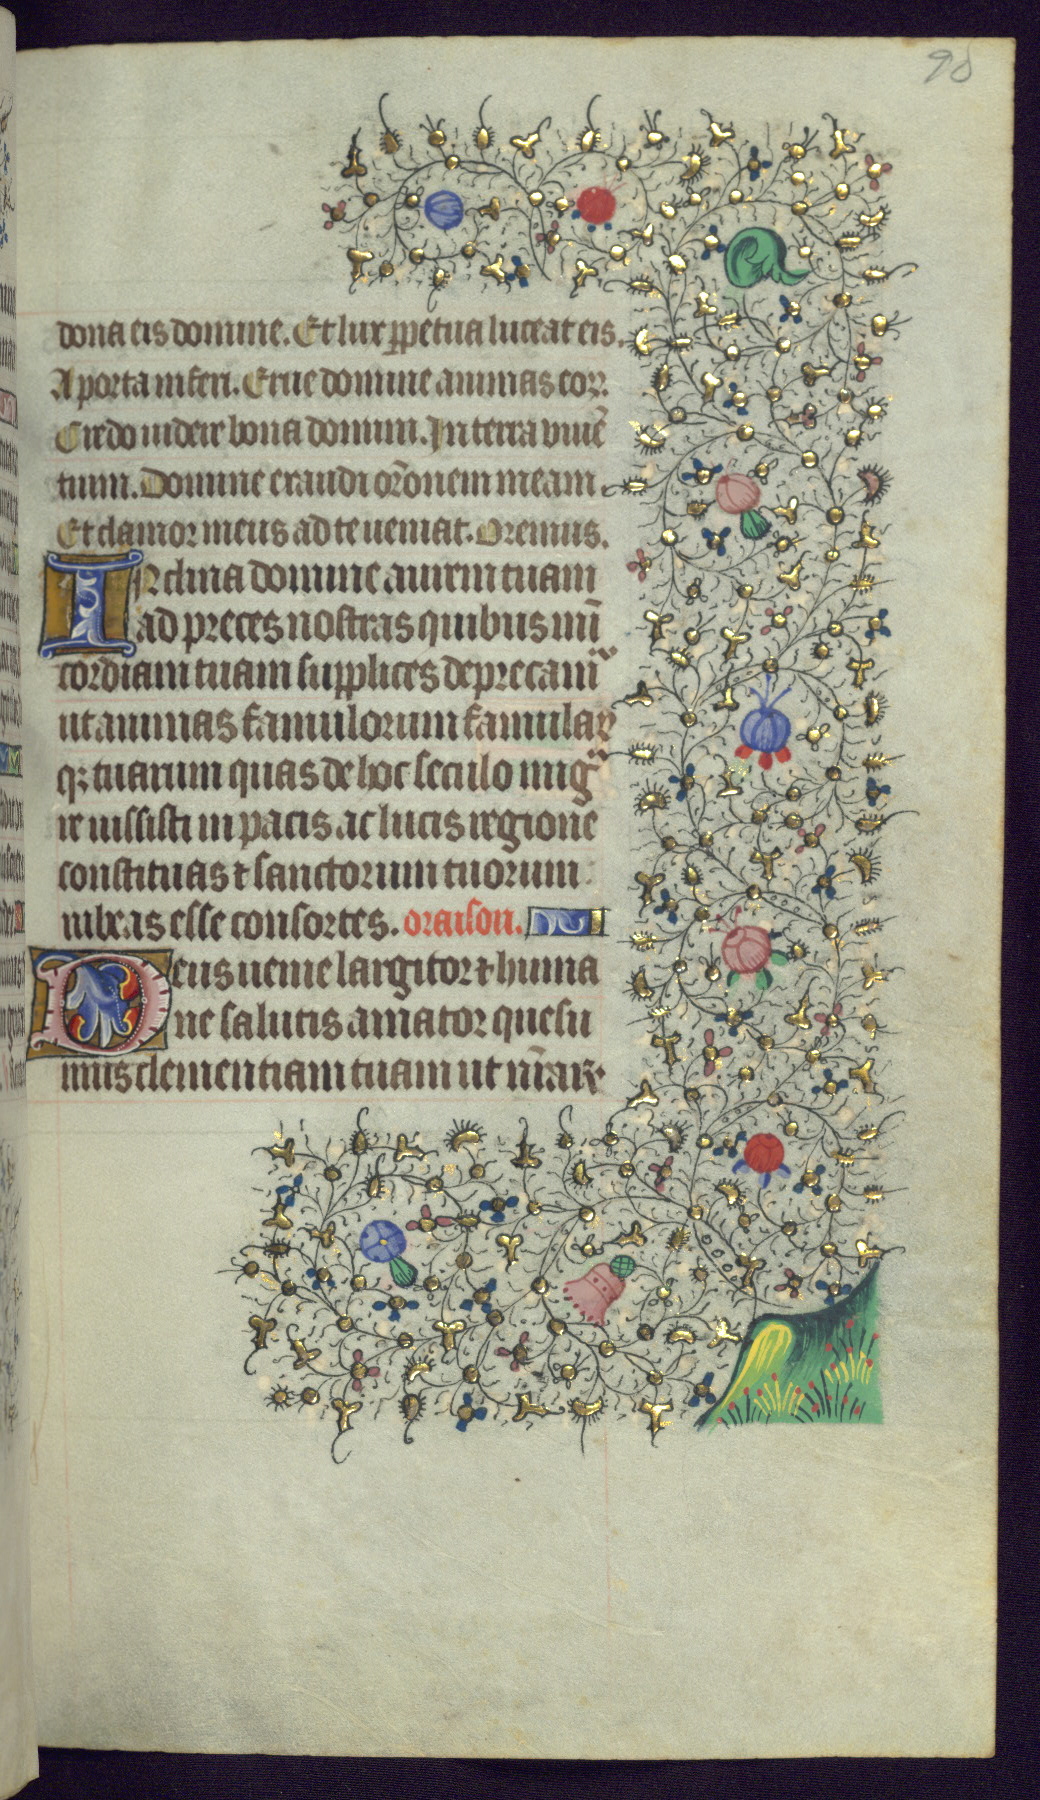 98
dona eis domine. Et lux ꝑpetua luceat eis.
A porta inferi. Erue domine animas eoꝝ.
Credo videre bona domini. In terra viuē
tium. Domine exaudi or̄onem meam.
Et clamor meus ad te ueniat. Oremus.
Inclina domine aurem tuam
ad preces nostras quibus mī
cordiam tuam supplices deprecam̄
ut animas famulorum famulaꝝ
qꝫ tuarum quas de hoc seculo mig
re iussisti in pacis ac lucis regione
constituas ⁊ sanctorum tuorum
iubeas esse consortes. oraison.
Deus uenie largitor ⁊ huma
ne salutis amator quesu
mus clementiam tuam ut nr̄aꝝ